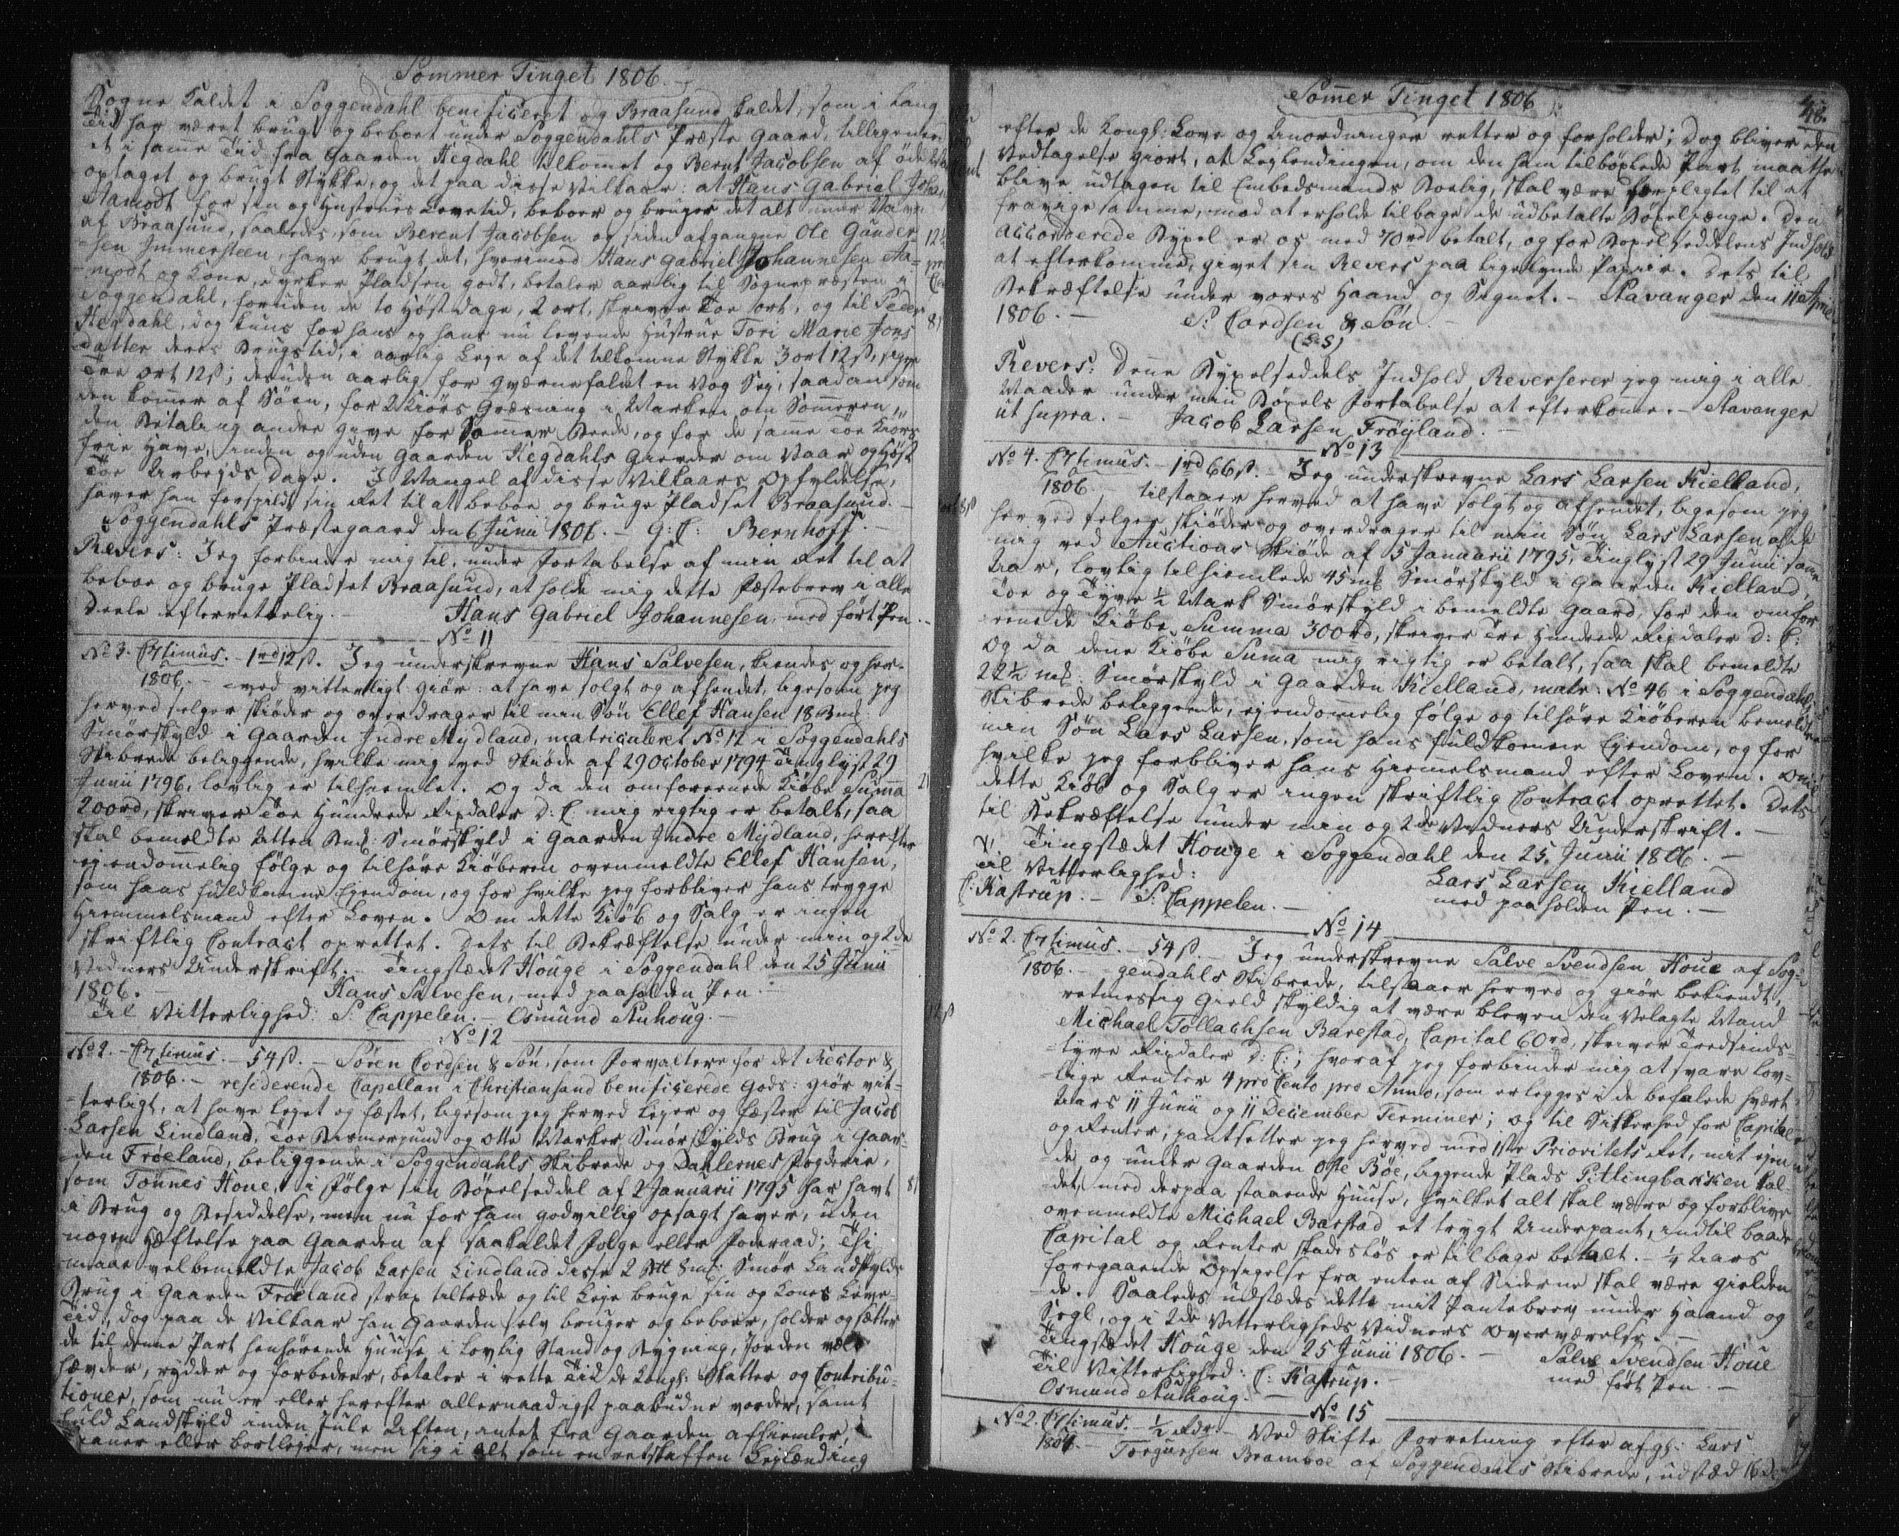 Sommer Tinget 1806.
Sogne Kaldet i Soggendahl beneficeret og Braasund kaldet, som i lang
Tid har været brugt og beboet under Soggendahls Præste Gaard, tilligemed
et i samme Tid fra Gaarden Hegdahl tilkomet og Bernt Jacobsen af øde
optaget og brugt Stykke, og det paa disse Vilkaar: at Hans Gabriel Johan
Aamodt for sin og Hustrues Levetid, beboer og bruger det alt under Navn
af Braasund, saaledes, som Berent Jacobsen og siden afgangne Ole Gunder-
sen Immersteen, have brugt det, hvorimod Hans Gabriel Johannesen Aa-
modt og Kone, dyrker Pladsen godt, betaler aarlig til Sognepræsten i
Soggendahl, foruden de to Høstdage, 2 ort, skriver Toe ort, og til Peder
Hegdahl, dog kuns for hans og hans nu levende Hustrue Tori Marie Jons
datter deres Brugstid, i aarlig Leje af det tilkomne Stykke 3 ort 12 ß, siger
Tre ort 12 ß; desuden aarlig for Qværnefaldet en Vog Sej, saadan som
den komer af Søen, for 2 Kiørs Græsning i Marken om Sommeren,
den Betaling andre give for Somer Beede, og for de samme Toe Kiørs
frie Have, inden og uden Gaarden Hegdahls Gierder om Vaar og Høst
Toe Arbejds Dage. I Mangel af disse Vilkaars Opfyldelse,
haver han forspildt sin Ret til at beboe og bruge Pladset Braasund. -
Soggendahls Præstegaard den 6 Junii 1806. - G: C: Bernhoft. -
Revers: Jeg forbinder mig til, under Fortabelse af min Ret til at
beboe og bruge Pladset Braasund, at holde mig dette Fæstebrev i alle
Deele efterrettelig. - Hans Gabriel Johannesen, med ført Pen. -
No 11
No 3. - 1rd 12 ß. - Jeg underskrevne Hans Salvesen, kiendes og her-
1806. - ved vitterligt giør: at have solgt og afhendet, ligesom jeg
herved selger skiøder og overdrager til min Søn Ellef Hansen 18 Bmk
Smørskyld i Gaarden Indre Mydland, matriculeret No 12 i Soggendahls
Skibrede beliggende, hvilke mig ved Skiøde af 29 October 1794 Tinglyst 29
Junii 1796, lovlig er tilhiemlet. Og da den omforenede Kiøbe Suma
200rd, skriver Toe Hundrede Rixdaler D: C: mig rigtig er betalt, saa
skal bemeldte Atten Bmk Smørskyld i Gaarden Indre Mydland, herefter
ejendomelig følge og tilhøre Kiøberen ovenmeldte Ellef Hansen,
som hans fuldkomne Ejendom, og for hvilke jeg forbliver hans trygge
Hiemmelsmand efter Loven. Om dette Kiøb og Salg er ingen
skriftlig Contract oprettet. Dets til Bekræftelse under min og 2de
Vidners Underskrift. Tingstædet Houge i Soggendahl den 25 Junii
1806. - Hans Salvesen, med paaholden Pen. -
Til Vitterlighed: P: Cappelen. - Osmund Auhoug. -
No 12
No 2. - 54 ß. - Søren Cordsen & Søn, som Forvaltere for det Rector &
1806. - residerende Capellan i Christiansand beneficerede Gods: giør vit-
terligt, at have lejet og fæstet, ligesom jeg herved lejer og fæster til Jacob
Larsen Lindland, Toe Bismerpund og otte Marker Smørskylds Brug i Gaar-
den Frøeland, beliggende i Soggendahls Skibrede og Dahlernes Fogderie,
som Tønnes Houe, i Følge sin Bøxelseddel af 2 Januarii 1795 har havt
i Brug og Besiddelse, men nu for ham godvillig opsagt haver, uden
nogen Hæftelse paa Gaarden af saakaldet Folge eller Foderaad; Thi
maae velbemeldte Jacob Larsen Lindland disse 2 B℔ 8 mk: Smør Landskylds
Brug i Gaarden Frøeland strax tiltræde og til Leje bruge sin og Kones Leve-
Tid, dog paa de Vilkaar han Gaarden selv bruger og beboer, holder og sætter
de til denne Part henhørende Huuse i lovlig Stand og Bygning, Jorden vel
hævder, rydder og forbedrer, betaler i rette Tid de Kongl: Skatter og Contribu-
tioner, som nu er eller herefter allernaadigst paabudne vorder, samt
fuld Landskyld inden Jule Aften, intet fra Gaarden afhiemler,
laaner eller bortlejer, men sig i alt som en retskaffen Lejlænding

Somer Tinget 1806
48.
efter de Kongl: Love og Anordninger retter og forholder; Dog bliver den
Vedtagelse giort, at Lejlendingen, om den ham tilbøxlede Part maatte
blive udtagen til Embedsmands Boelig, skal være forpligtet til at
fravige samme, mod at erholde tilbage de udbetalte Bøxelpænge. Den
accorderede Bøxel er os med 70rd betalt, og for Bøxelseddelens Indhold
at efterkomme, givet sin Revers paa ligelydende Papiir. Dets til
Bekræftelse under vores Haand og Signet. - Stavanger den 11 April
1806. - S: Cordsen & Søn.
(L.S)
Revers: Denne Bøxelseddels Indhold, Reverserer jeg mig i alle
Maader under min Bøxels Fortabelse at efterkome. - Stavanger
ut supra. - Jacob Larsen Frøyland.
No 13
No 4. - 1rd 66 ß. - Jeg underskrevne Lars Larsen Kielland,
1806. tilstaaer herved at have solgt og afhendet, ligesom jeg
herved selger skiøder og overdrager til min Søn Lars Larsen af de
mig ved Auctions Skiøde af 5 Januarii 1795, Tinglyst 29 Junii same
Aar, lovlig tilhiemlede 45 mk Smørskyld i Gaarden Kielland,
Toe og Tyve ½ Mark Smørskyld i bemeldte Gaard, for den omfor
enede Kiøbe Summa 300rd, skriver Tre Hundrede Rixdaler D: C:
Og da denne Kiøbe Suma mig rigtig er betalt, saa skal bemeldte
22½ mk: Smørskyld i Gaarden Kielland, matr: No 46 i Soggendahls
Skibrede beliggende, ejendommelig følge og tilhøre Kiøberen bemeldte
min Søn Lars Larsen, som hans fuldkomne Ejendom, og for
hvilke jeg forbliver hans Hiemmelsmand efter Loven. Om
dette Kiøb og Salg er ingen skriftlig Contract oprettet. Dets
til Bekræftelse under min og 2de Vidners Underskrift. -
Tingstædet Houge i Soggendahl den 25 Junii 1806. -
Til Vitterlighed: Lars Larsen Kielland
C: Kastrup. - P: Cappelen. - med paaholden Pen. -
No 14
No 2. - 54 ß. - Jeg underskrevne Salve Svendsen Houe af Sog-
1806. - gendahls Skibrede, tilstaaer herved og giør bekiendt,
retmessig Gield skyldig at være bleven den Velagte Mand
Michael Tollachsen Barestad, Capital 60rd, skriver Tredsinds-
tyve Rixdaler D: C:; hvoraf jeg forbinder mig at svare lov-
lige Renter 4 pro Cento pro Anno, som erlegges i de befalede hvert
Aars 11 Junii og 11 December Terminer; og til Sikkerhed for Capital
og Renter, pantsetter jeg herved med 1ste Prioritets Ret, mit ejen
de og under Gaarden Øfte Bøe, liggende Plads Pitlingbakken kal
det, med derpaa staaende Huuse, hvilket alt skal være og forblive
ovenmeldte Michael Barstad et trygt Underpant, indtil baade
Capital og Renter skadesløs er tilbage betalt. - ¼ Aars
foregaaende Opsigelse fra enten af Siderne skal være gielden
de. Saaledes udstædes dette mit Pantebrev under Haand og
Segl, og i 2de Vitterligheds Vidners Overværelse. -
Tingstædet Houge den 25 Junii 1806. - Salve Svendsen Houe
Til Vitterlighed: C: Kastrup. - med ført Pen. -
Osmund Auhoug. -
No 15
No 2. - ½ Rdr - Ved Skifte Forretning efter afg: Lars
1806 Torgersen Bramboe af Soggendahls Skibrede, udstæd 16 De